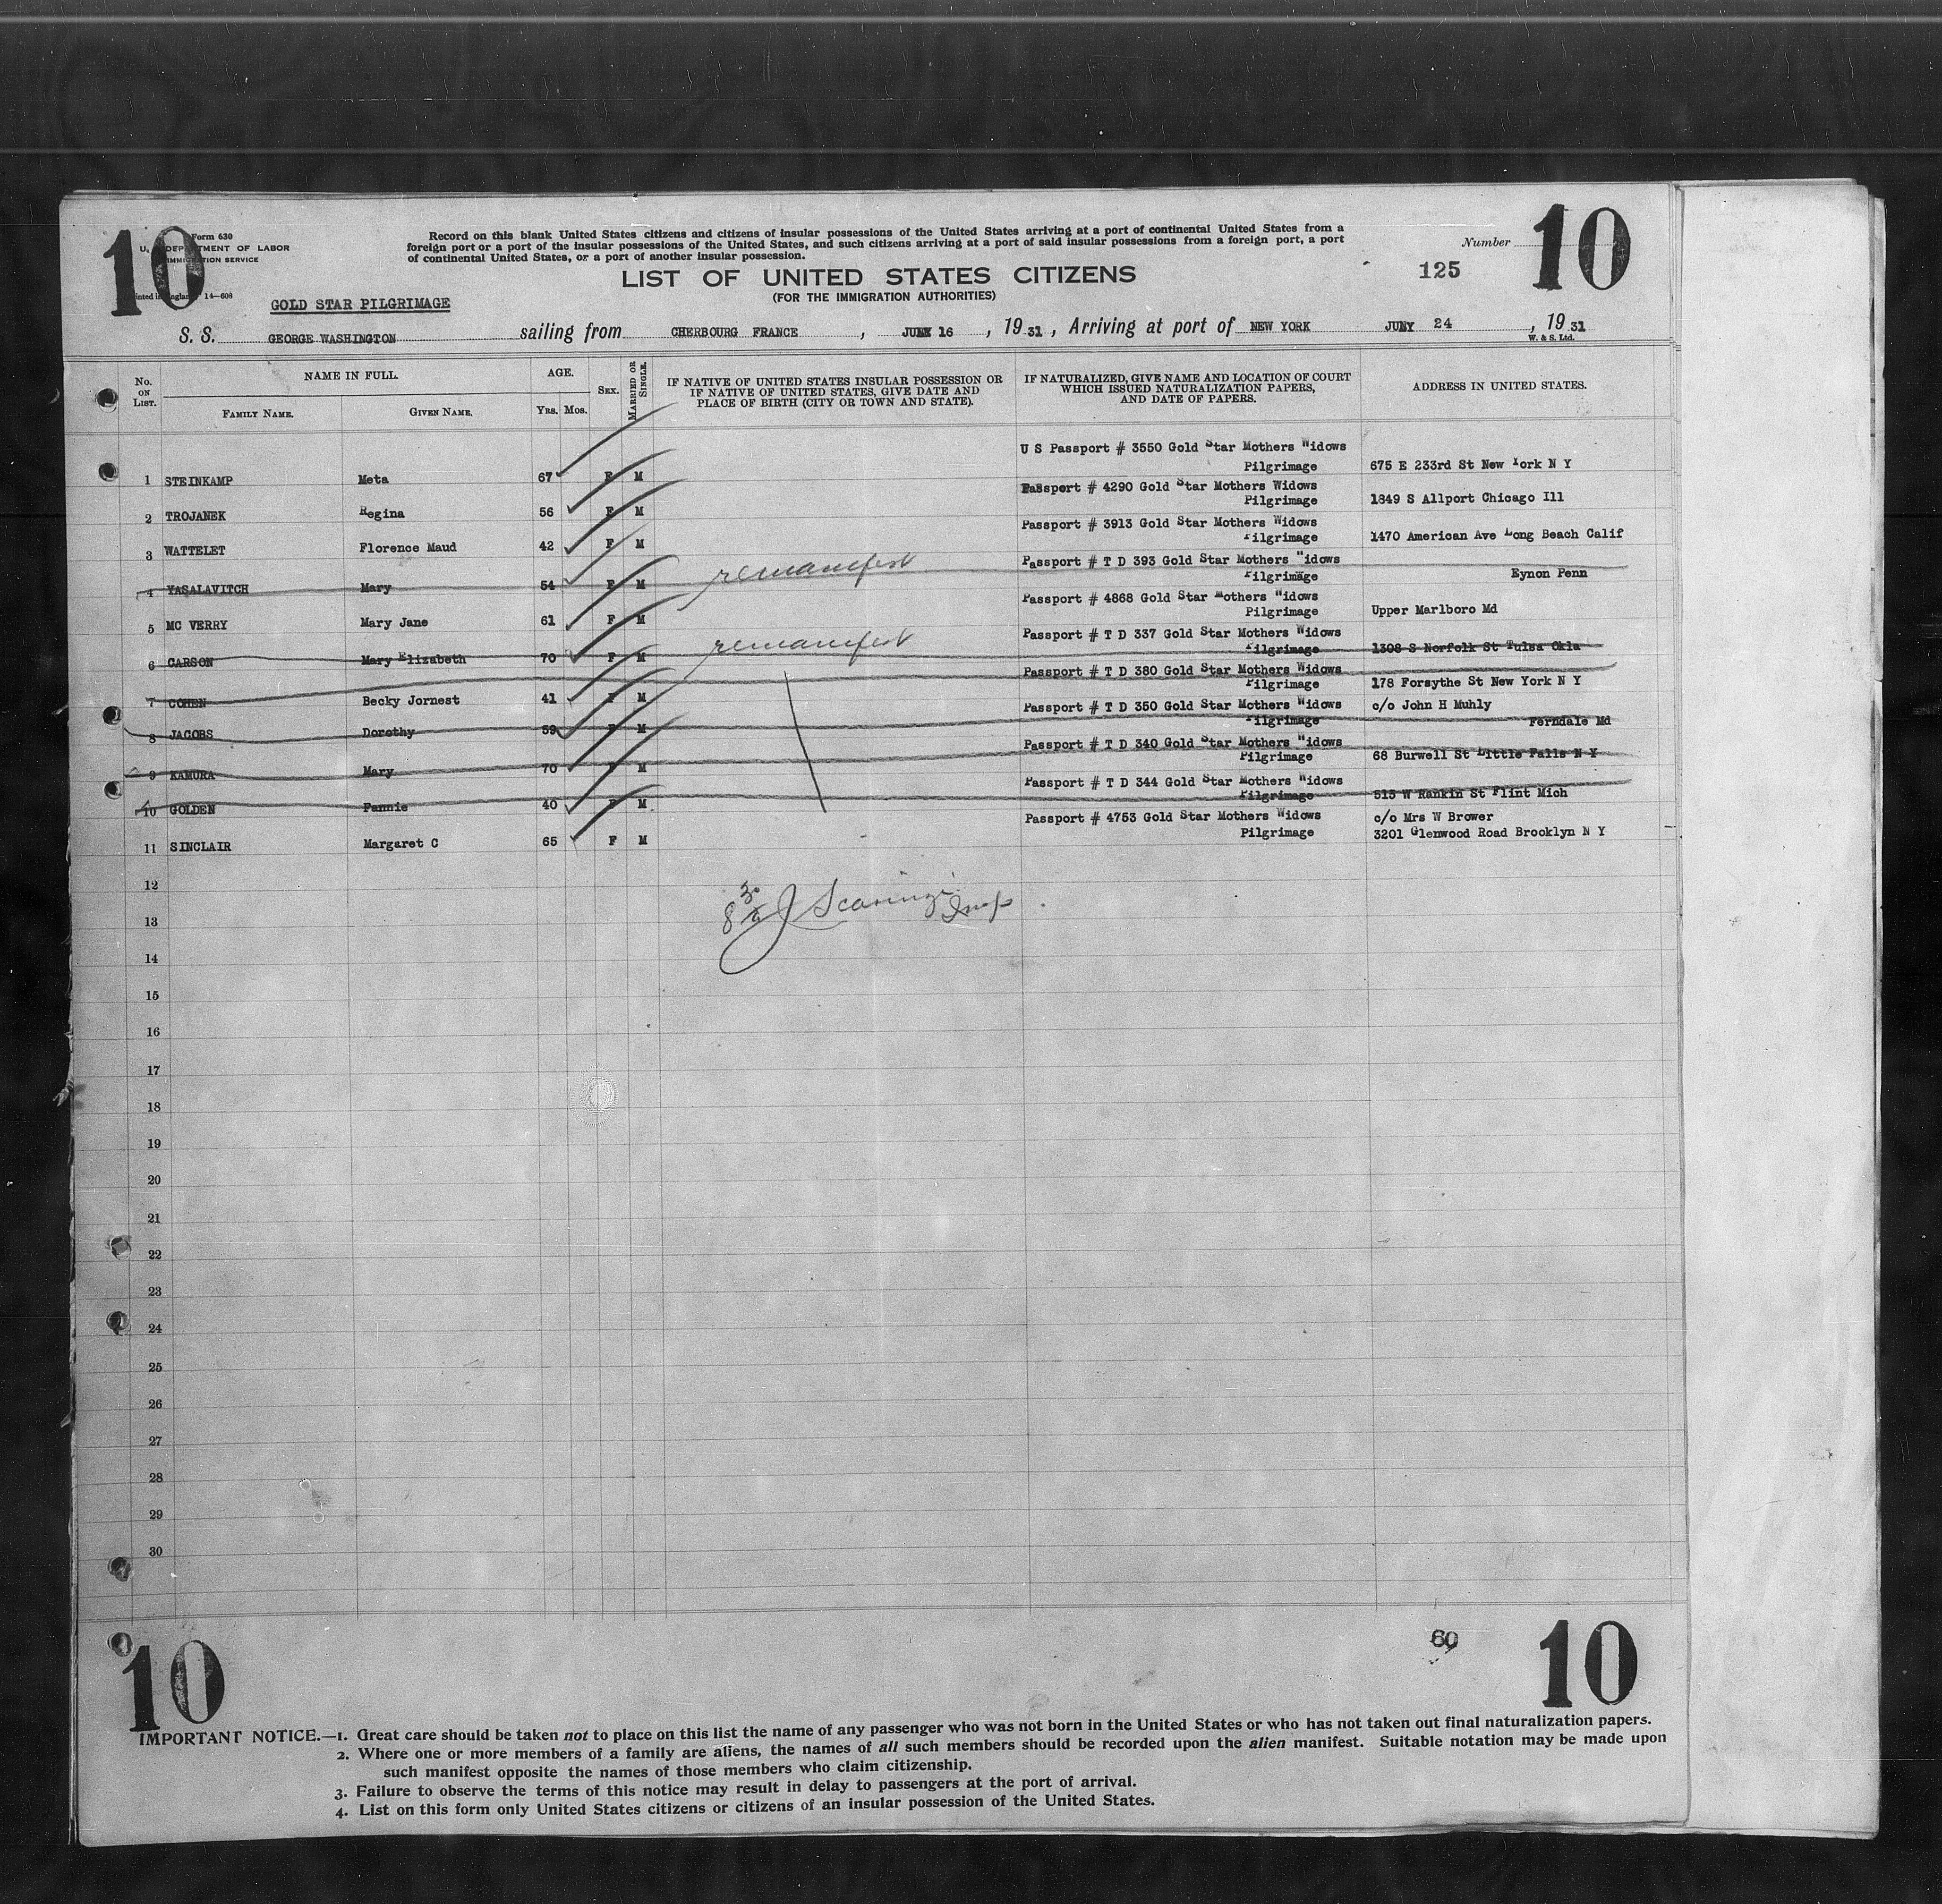 10
10
Form 630
U. S. DEPARTMENT OF LABOR
IMMIGRATION SERVICE
Printed in England 14—608
Record on this blank United States citizens and citizens of insular possessions of the United States arriving at a port of continental United States from a
foreign port or a port of the insular possessions of the United States, and such citizens arriving at a port of said insular possessions from a foreign port, a port
of continental United States, or a port of another insular possession.
Number
125
LIST OF UNITED STATES CITIZENS
(FOR THE IMMIGRATION AUTHORITIES)
GOLD STAR PILGRIMAGE
S. S. GEORGE WASHINGTON sailing from CHERBOURG FRANCE, JUNE 16, 1931, Arriving at port of NEW YORK 24, 1931
W. & S. Ltd.
No. ON LIST.
NAME IN FULL.
FAMILY NAME.
GIVEN NAME.
AGE.
YRS. MOS.
SEX.
MARRIED OR SINGLE.
IF NATIVE OF UNITED STATES INSULAR POSSESSION OR
IF NATIVE OF UNITED STATES, GIVE DATE AND
PLACE OF BIRTH (CITY OR TOWN AND STATE).
IF NATURALIZED, GIVE NAME AND LOCATION OF COURT
WHICH ISSUED NATURALIZATION PAPERS,
AND DATE OF PAPERS.
ADDRESS IN UNITED STATES.
U S Passport # 3550 Gold Star Mothers Widows
1 STEINKAMP Meta 67 F M Pilgrimage 675 E 233rd St New York N Y
Passport # 4290 Gold Star Mothers Widows
2 TROJANEK Regina 56 F M Pilgrimage 1849 S Allport Chicago Ill
Passport # 3913 Gold Star Mothers Widows
3 WATTELET Florence Maud 42 F M Pilgrimage 1470 American Ave Long Beach Calif
Passport # T D 393 Gold Star Mothers Widows
4 YASALAVITCH Mary 54 F M remanifest Pilgrimage Eynon Penn
Passport # 4868 Gold Star Mothers Widows
5 MC VERRY Mary Jane 61 F M Pilgrimage Upper Marlboro Md
Passport # T D 337 Gold Star Mothers Widows
6 CARSON Mary Elizabeth 70 F M remanifest Pilgrimage 1308 S Norfolk St Tulsa Okla
Passport # T D 380 Gold Star Mothers Widows
7 COHEN Becky Jornest 41 F M Pilgrimage 178 Forsythe St New York N Y
Passport # T D 350 Gold Star Mothers Widows c/o John H Muhly
8 JACOBS Dorothy 59 F M Pilgrimage Ferndale Md
Passport # T D 340 Gold Star Mothers Widows
9 KAMURA Mary 70 F M Pilgrimage 68 Burwell St Little Falls N Y
Passport # T D 344 Gold Star Mothers Widows
10 GOLDEN Fannie 40 F M Pilgrimage 515 W Rankin St Flint Mich
Passport # 4753 Gold Star Mothers Widows c/o Mrs W Brower
11 SINCLAIR Margaret C 65 F M Pilgrimage 3201 Glenwood Road Brooklyn N Y
12
13
14
15
16
17
18
19
20
21
22
23
24
25
26
27
28
29
30
60
10
10
IMPORTANT NOTICE.—1. Great care should be taken not to place on this list the name of any passenger who was not born in the United States or who has not taken out final naturalization papers.
2. Where one or more members of a family are aliens, the names of all such members should be recorded upon the alien manifest. Suitable notation may be made upon
such manifest opposite the names of those members who claim citizenship.
3. Failure to observe the terms of this notice may result in delay to passengers at the port of arrival.
4. List on this form only United States citizens or citizens of an insular possession of the United States.